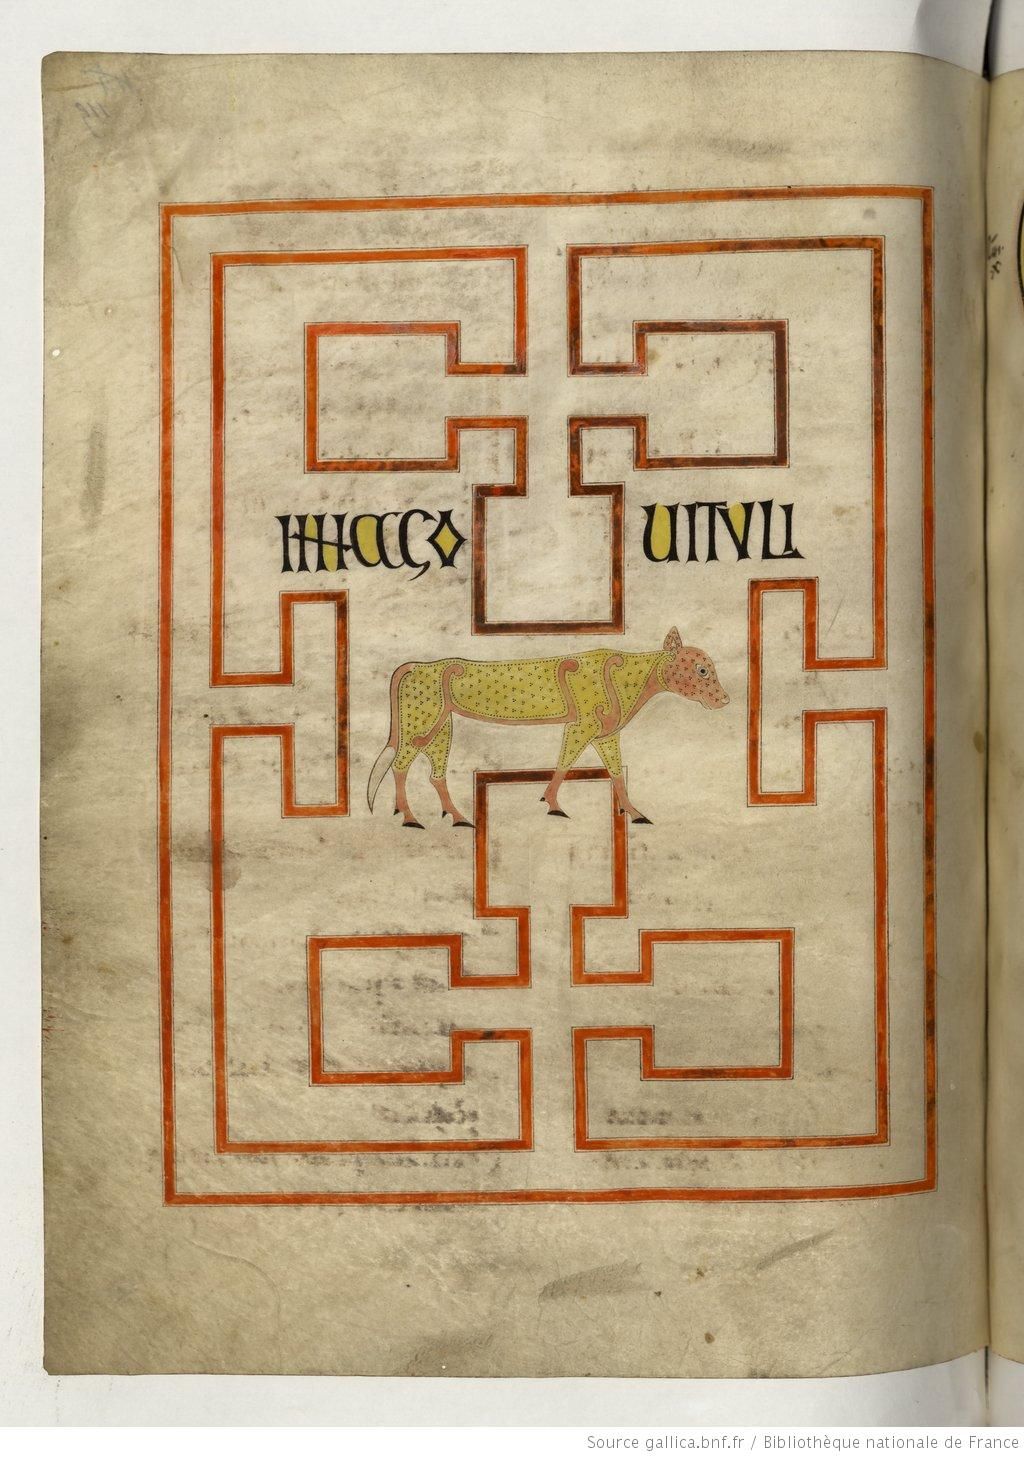 IMAGO UITULI
Source gallica.bnf.fr / Bibliothèque nationale de France